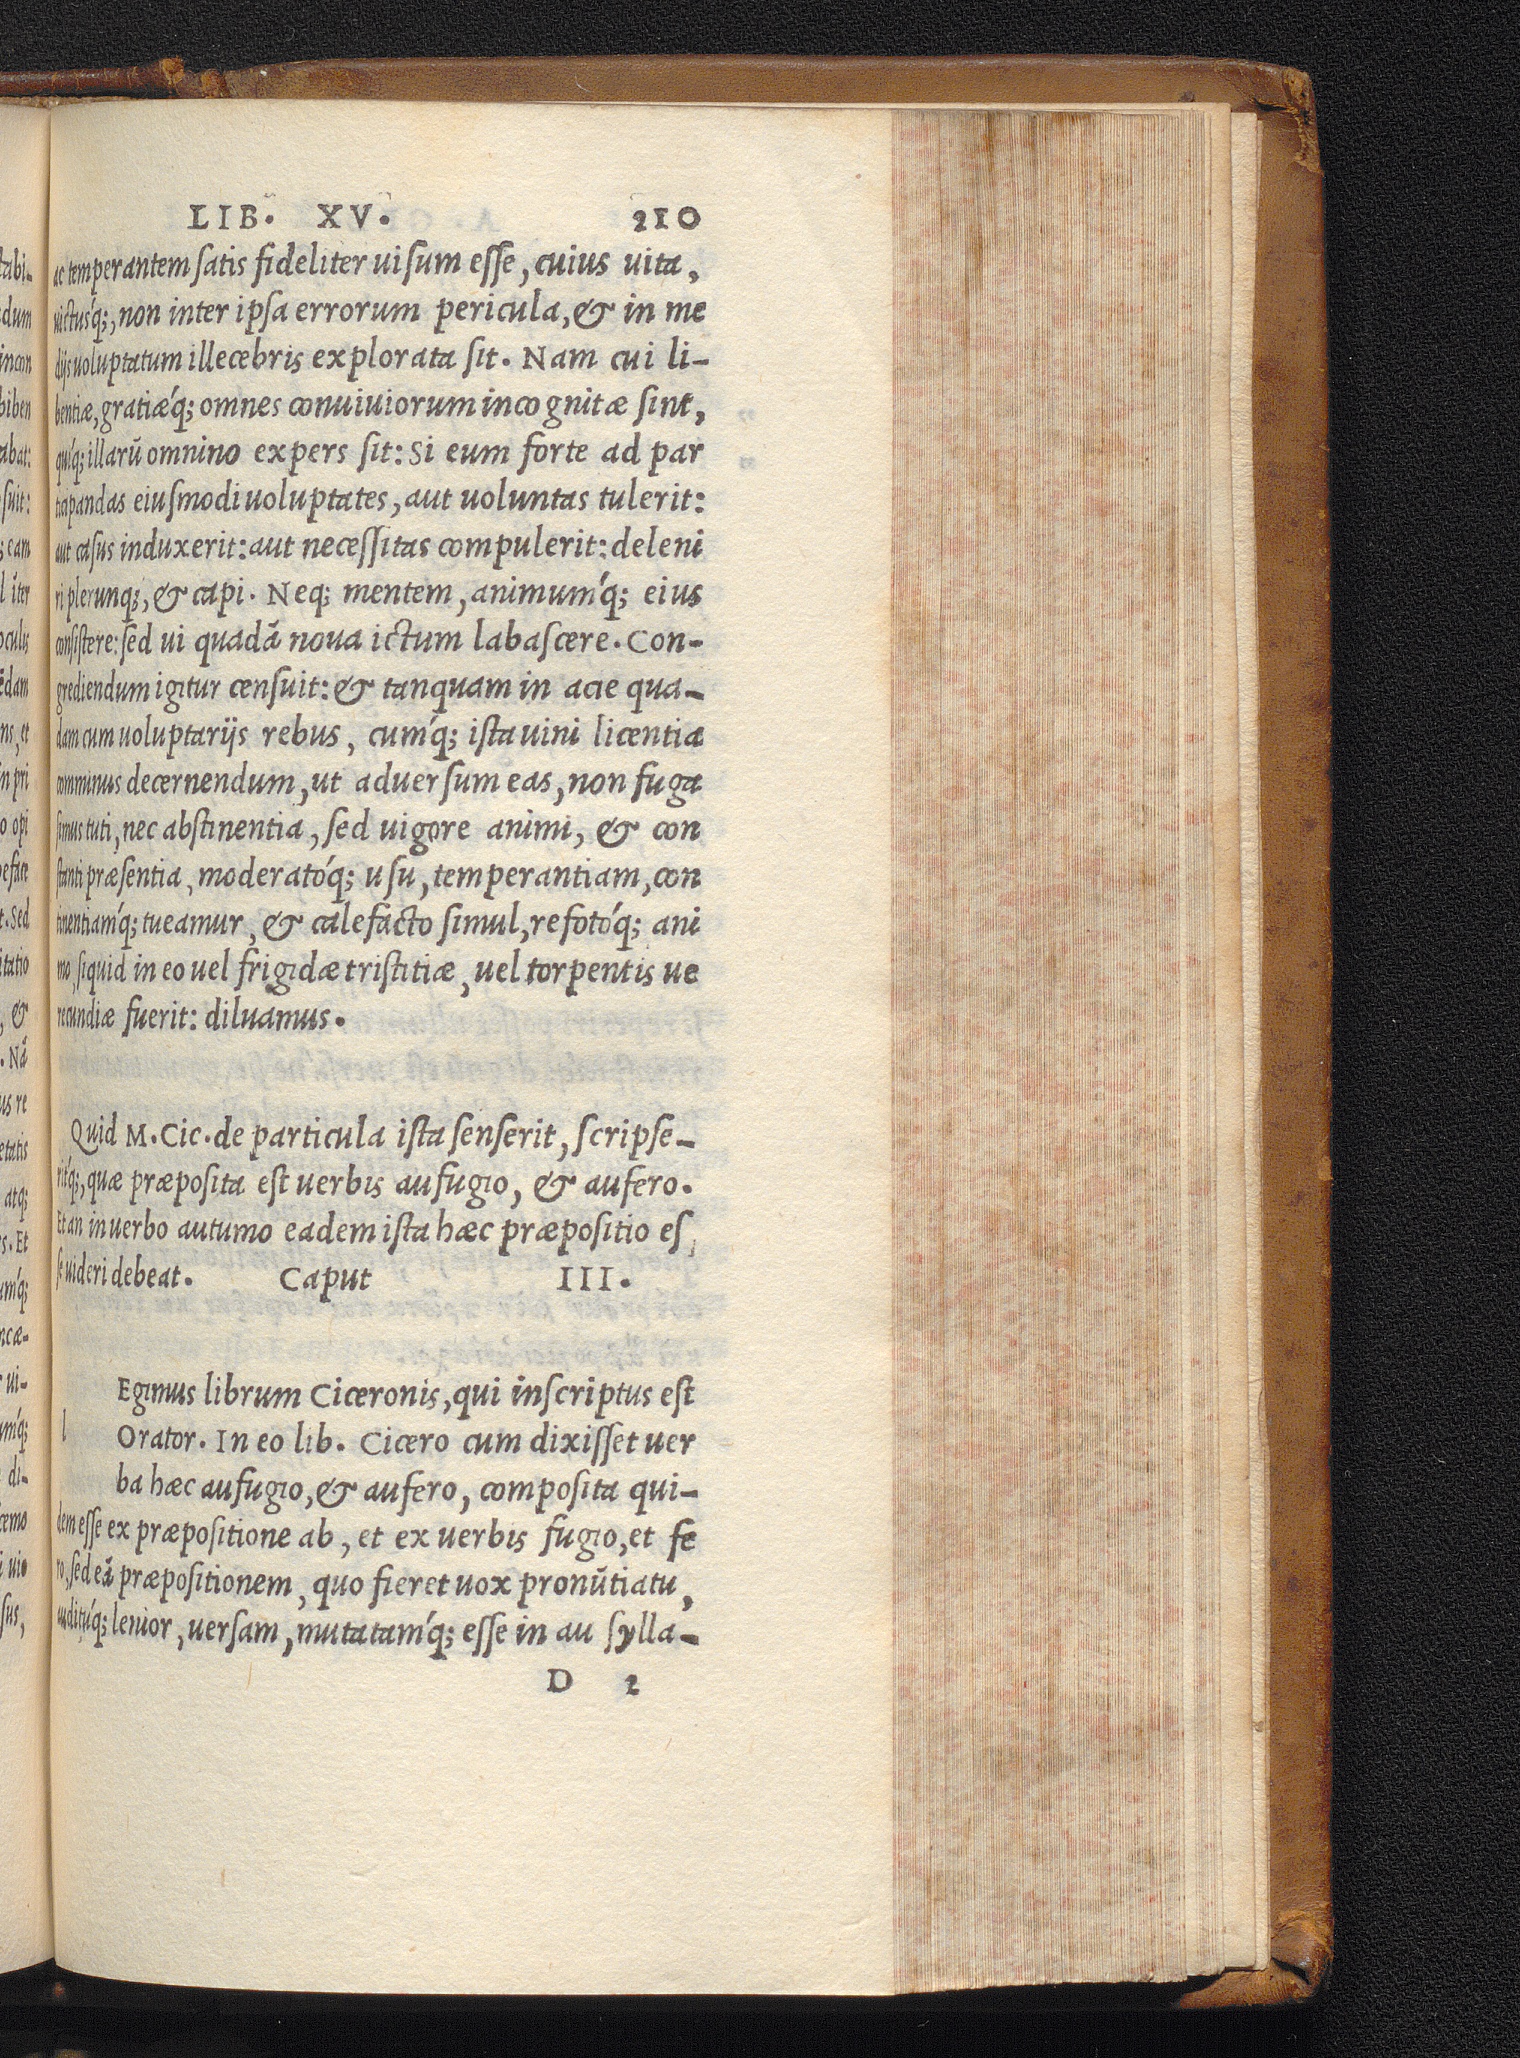 LIB. XV. 210
ac temperantem satis fideliter uisum esse, cuius uita,
uictus'q;, non inter ipsa errorum pericula, & in me
dijs uoluptatum illecebris explorata sit. Nam cui li-
bentiæ, gratiæ'q; omnes conuiuiorum incognitæ sint,
qui'q; illarū omnino expers sit: Si eum forte ad par
ticipandas eiusmodi uoluptates, aut uoluntas tulerit:
aut casus induxerit: aut necessitas compulerit: deleni
ri plerunq;, & capi. Neq; mentem, animum'q; eius
consistere: sed ui quadā noua ictum labascere. Con-
grediendum igitur censuit: & tanquam in acie qua-
dam cum uoluptarijs rebus, cum'q; ista uini licentia
comminus decernendum, ut aduersum eas, non fuga
simus tuti, nec abstinentia, sed uigore animi, & con
stanti præsentia, moderato'q; usu, temperantiam, con
tinentiam'q; tueamur, & calefacto simul, refoto'q; ani
mo, siquid in eo uel frigidæ tristitiæ, uel torpentis ue
recundiæ fuerit: diluamus.
Quid M. Cic. de particula ista senserit, scripse-
rit'q;, quæ præposita est uerbis aufugio, & aufero.
Et an in uerbo autumo eadem ista hæc præpositio es
se uideri debeat. Caput III.
Egimus librum Ciceronis, qui inscriptus est
l Orator. In eo lib. Cicero cum dixisset uer
ba hæc aufugio, & aufero, composita qui-
dem esse ex præpositione ab, et ex uerbis fugio, et fe
ro, sed eā præpositionem, quo fieret uox pronūtiatu,
auditu'q; lenior, uersam, mutatam'q; esse in au sylla-
D 2